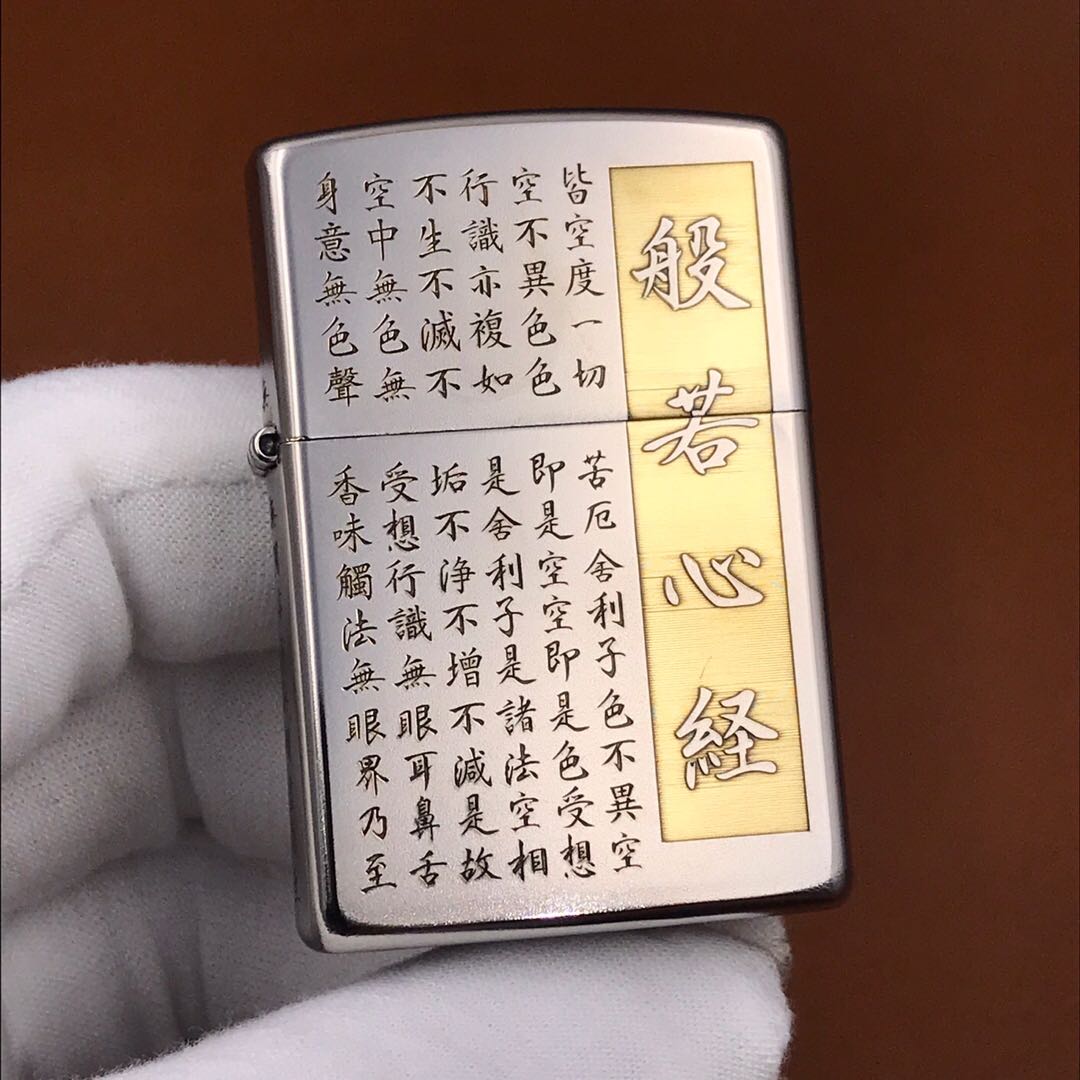 般若心経
皆空度一切苦厄舍利子色不異空
空不異色色即是空空即是色受想
行識亦複如是舍利子是諸法空相
不生不滅不垢不浄不增不減是故
空中無色無受想行識無眼耳鼻舌
身意無色聲香味觸法無眼界乃至